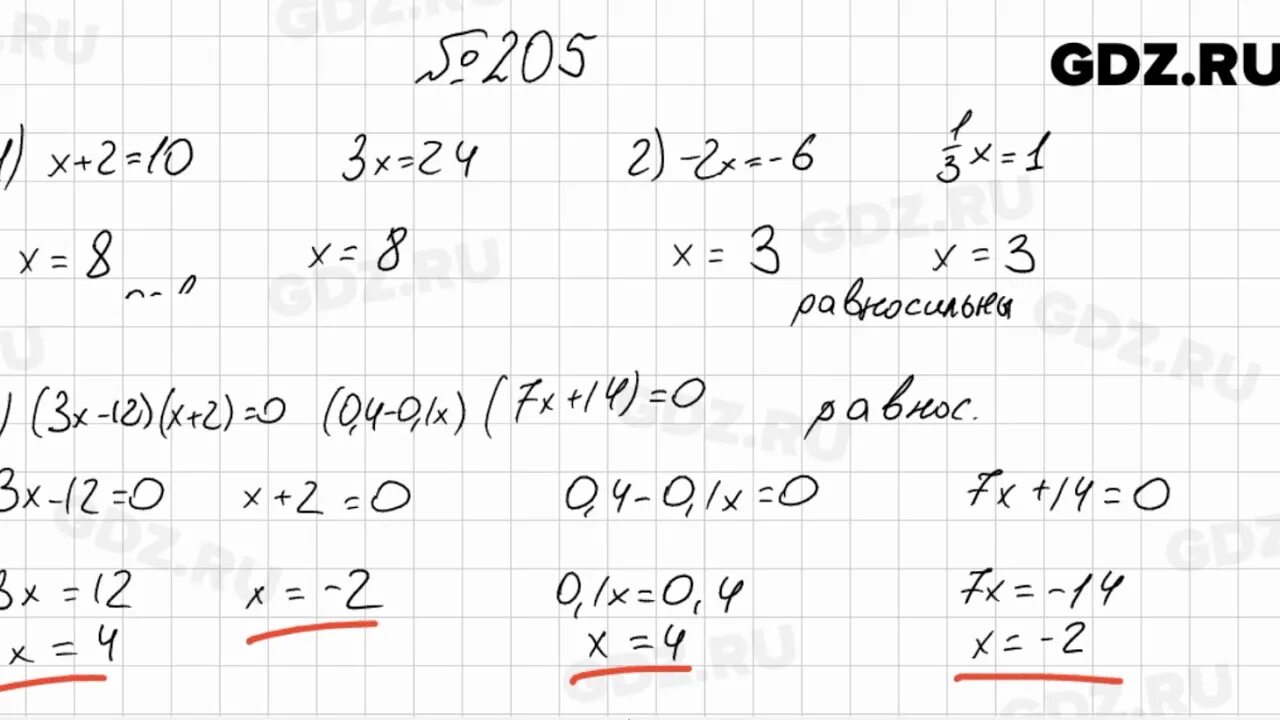 №205
GDZ.RU
1) x+2=10 3x=24 2) -2x=-6 1/3 x=1
x=8 x=8 x=3 x=3
равносильны
) (3x-12)(x+2)=0 (0,4-0,1x)(7x+14)=0 равнос.
3x-12=0 x+2=0 0,4-0,1x=0 7x+14=0
3x=12 x=-2 0,1x=0,4 7x=-14
x=4 x=4 x=-2